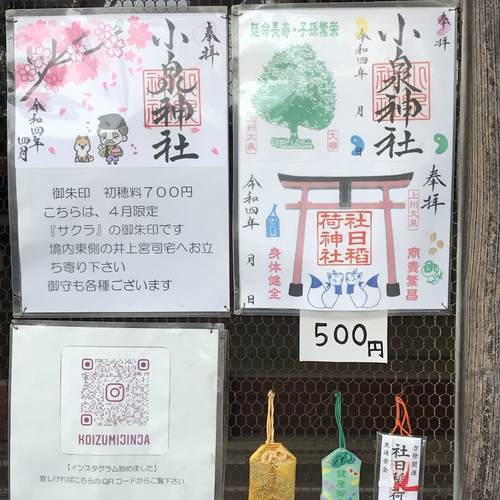 奉拝
小泉神社
令和四年
四月
御朱印 初穂料７００円
こちらは、４月限定
『サクラ』の御朱印です
境内東側の井上宮司宅へお立
ち寄り下さい
御守も各種ございます
延命長寿・子孫繁栄
奉拝
小泉神社
令和四年 月 日
上州大泉
大欅
奉拝
上州大泉
社日稲
荷神社
令和四年 月 日
身体健全
商売繁昌
500円
KOIZUMIJINJA
【インスタグラム始めました】
宜しければこちらのQRコードからご覧下さい
健康御
方除開運
社日稲荷
交通安全